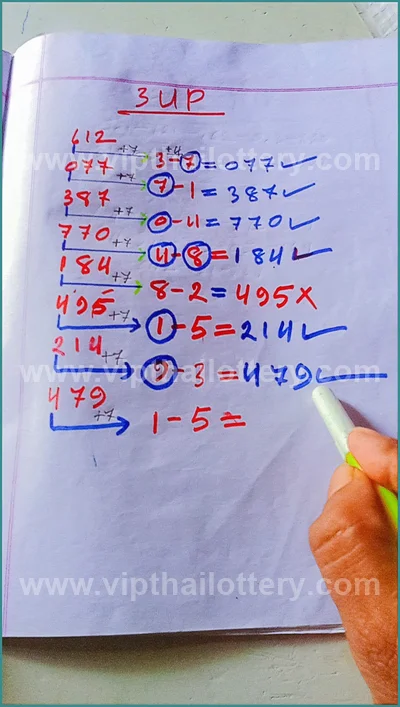 3UP
612
+7 3-7=077✓
+4
077
www.vipthailottery.com
+7 7-1=387✓
387
+7 0-4=770✓
770
+7 4-8=184✓
184
+7 8-2=495×
495
+7 1-5=214✓
214
+7 9-3=479✓
479
+7 1-5=
www.vipthailottery.com